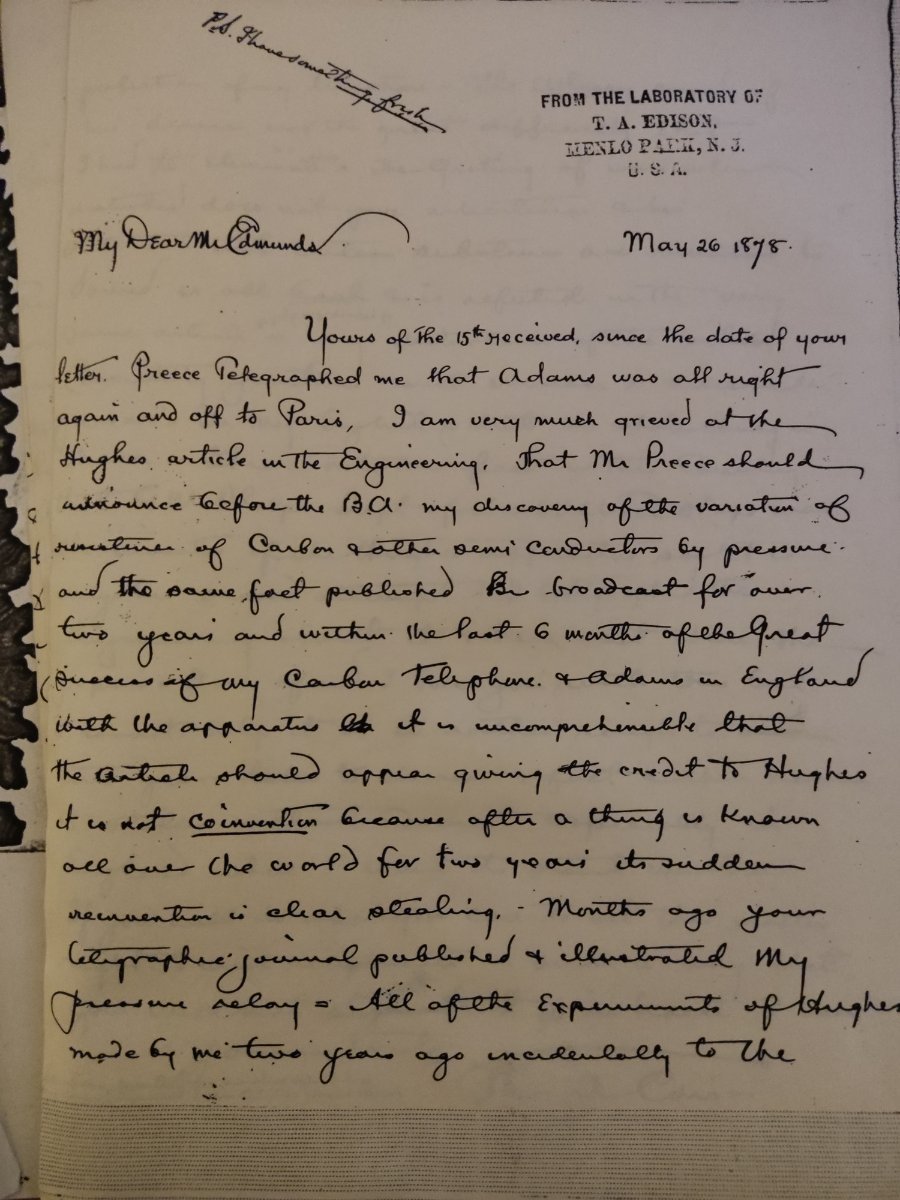 P.S. I have something fresh
FROM THE LABORATORY OF
T. A. EDISON,
MENLO PARK, N. J.
U. S. A.
My Dear Mr Edmunds
May 26 1878.
Yours of the 15th received, since the date of your
letter. Preece Telegraphed me that Adams was all right
again and off to Paris, I am very much grieved at the
Hughes article in the Engineering. That Mr Preece should
announce before the B.A. my discovery of the variation of
resistance of Carbon & other semi conductors by pressure.
and the same fact published broadcast for over
two years and within the last 6 months of the Great
success of my Carbon Telephone. & Adams in England
with the apparatus it is uncomprehensible that
the article should appear giving the credit to Hughes
it is not coinvention because after a thing is known
all over the world for two years its sudden
reinvention is clear stealing. - Months ago your
telegraphic journal published & illustrated My
pressure relay = All of the Experiments of Hughes
made by me two years ago incidentally to the